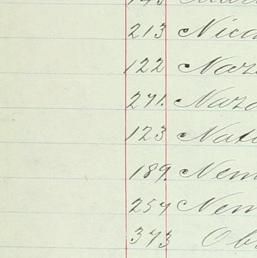 213 Nic
122 Naz
271. Naza
123 Nat
189. Nem
254 Nem
373 Ob